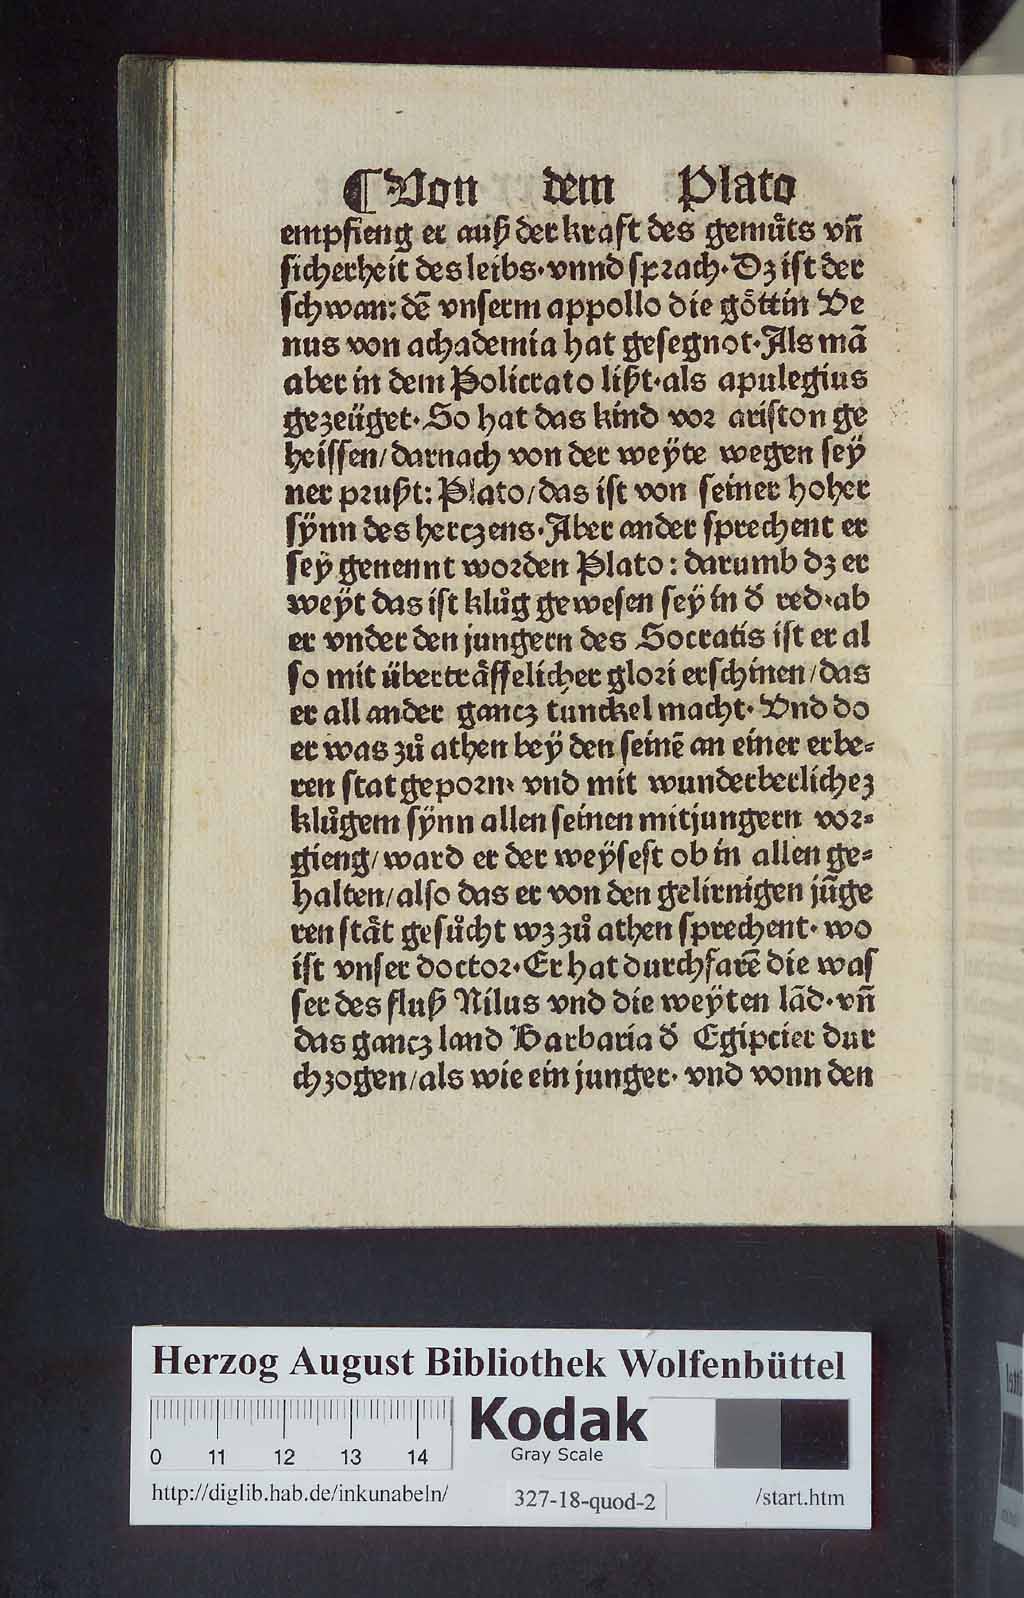 ¶Von dem Plato
empfieng er auß der kraft des gemuͤts vn̄
sicherheit des leibs· vnnd sprach· Dz ist der
schwan: dē vnserm appollo die goͤttin Ve
nus von achademia hat gesegnot· Als mā
aber in dem Policrato lißt· als apulegius
gezeüget· So hat das kind vor ariston ge
heissen/ darnach von der weÿte wegen seÿ
ner prußt: Plato/ das ist von seiner hoher
sÿnn des herczens· Aber ander sprechent er
seÿ genennt worden Plato: darumb dz er
weÿt das ist kluͦg gewesen seÿ in d̕ red· ab
er vnder den jungern des Socratis ist er al
so mit übertraͤffelicher glori erschinen/ das
er all ander gancz tunckel macht· Vnd do
er was zuͦ athen beÿ den seinē an einer erbe⸗
ren stat geporn· vnd mit wunderberlichez
kluͦgem sÿnn allen seinen mitjungern vor⸗
gieng/ ward er der weÿsest ob in allen ge⸗
halten/ also das er von den gelirnigen jūge
ren staͤt gesuͦcht wz zuͦ athen sprechent· wo
ist vnser doctor· Er hat durchfarē die was
ser des fluß Nilus vnd die weÿten lād· vn̄
das gancz land Barbaria d̕ Egipcier dur
chzogen/ als wie ein junger· vnd vonn den
Herzog August Bibliothek Wolfenbüttel
0 11 12 13 14
Kodak
Gray Scale
http://diglib.hab.de/inkunabeln/ 327-18-quod-2 /start.htm